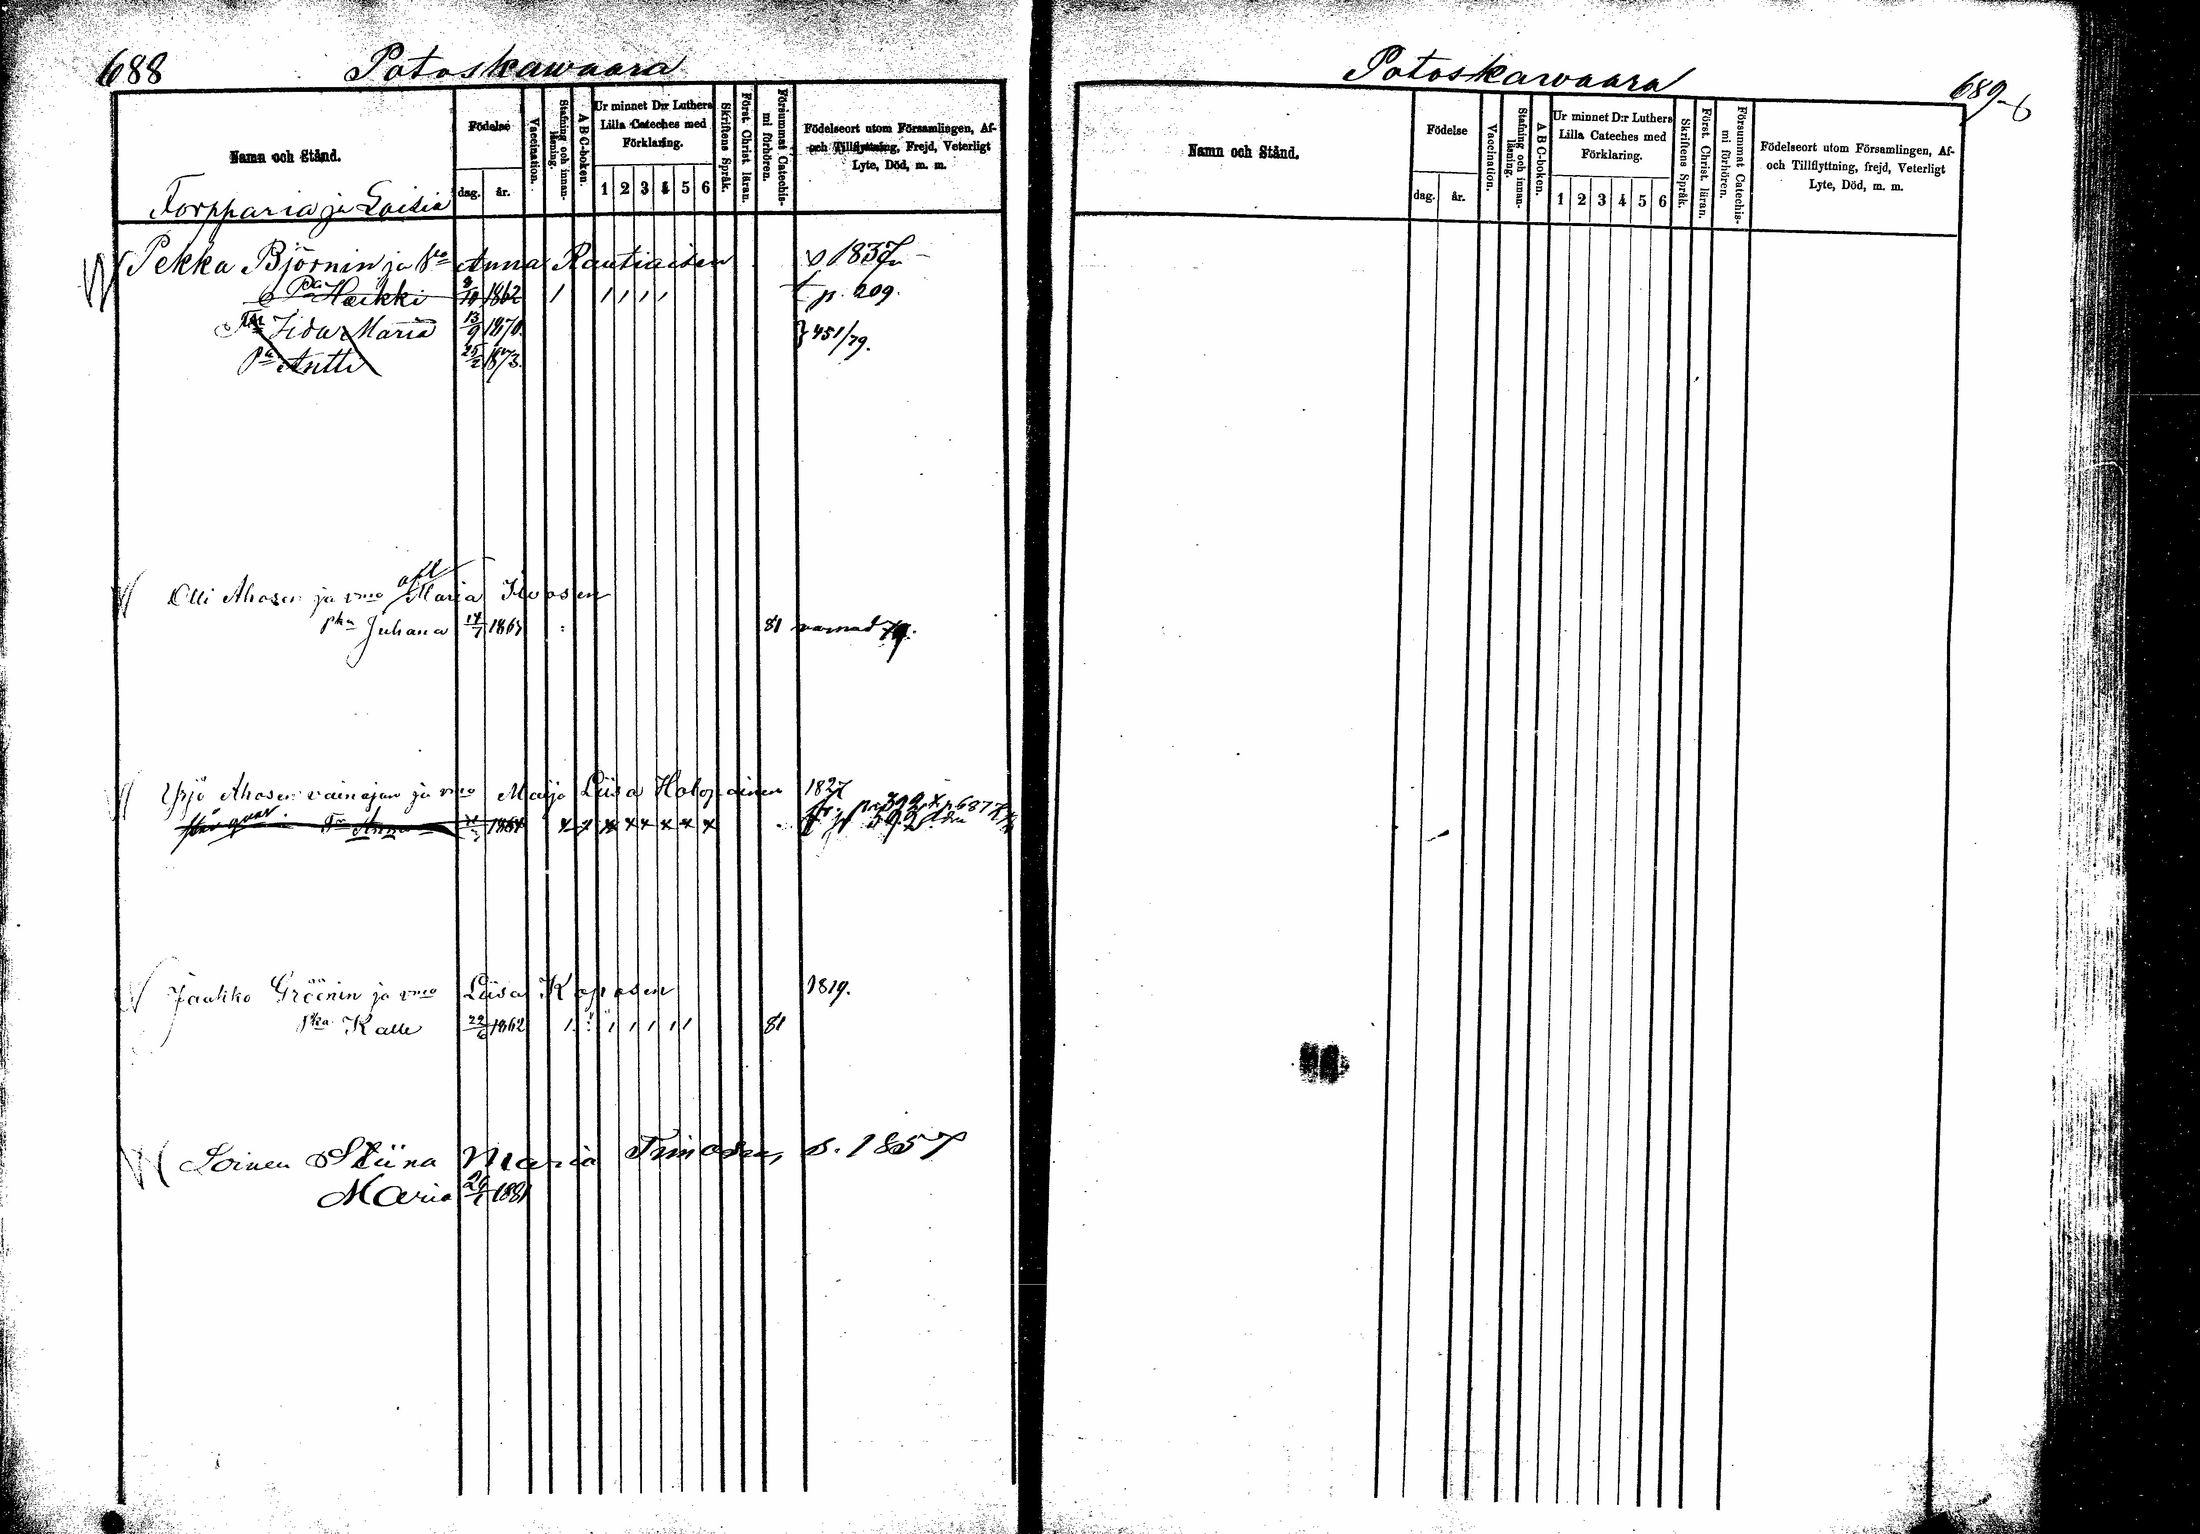 688 Potoskawaara
Namn och Stånd.
Födelse
dag. år.
Vaccination.
Stafning och innanläsning.
A B C-boken.
Ur minnet D:r Luthers
Lilla Cateches med
Förklaring.
1 2 3 4 5 6
Skriftens Språk.
Först. Christ. läran.
Försummat Catechismi förhören.
Födelseort utom Församlingen, Af-
och Tillflyttning, Frejd, Veterligt
Lyte, Död, m. m.
Torpparia ja Loisia
Pekka Björnin ja Anna Rautiaisen 1837
Pa Heikki 1862 p. 209.
Tr Iida Maria 13/9 1870. 451/79.
Pa Antti 25/2 1873.
Olli Ahosen ja vmo Maria
pka Juhana 1865 81 79.
Yrjö Ahosen vainajan ja vmo Maija Liisa Holopainen 1827
står qvar. Tr Anna 1864 p 392
Jaakko Gröönin ja vmo Liisa Koposen 1819.
pka Kalle 22/6 1862 81
Loinen Stiina Maria Timosen, s. 1857
Maria 1881
Potoskawaara 689
Namn och Stånd.
Födelse
dag. år.
Vaccination.
Stafning och innanläsning.
A B C-boken.
Ur minnet D:r Luthers
Lilla Cateches med
Förklaring.
1 2 3 4 5 6
Skriftens Språk.
Först. Christ. läran.
Försummat Catechismi förhören.
Födelseort utom Församlingen, Af-
och Tillflyttning, frejd, Veterligt
Lyte, Död, m. m.